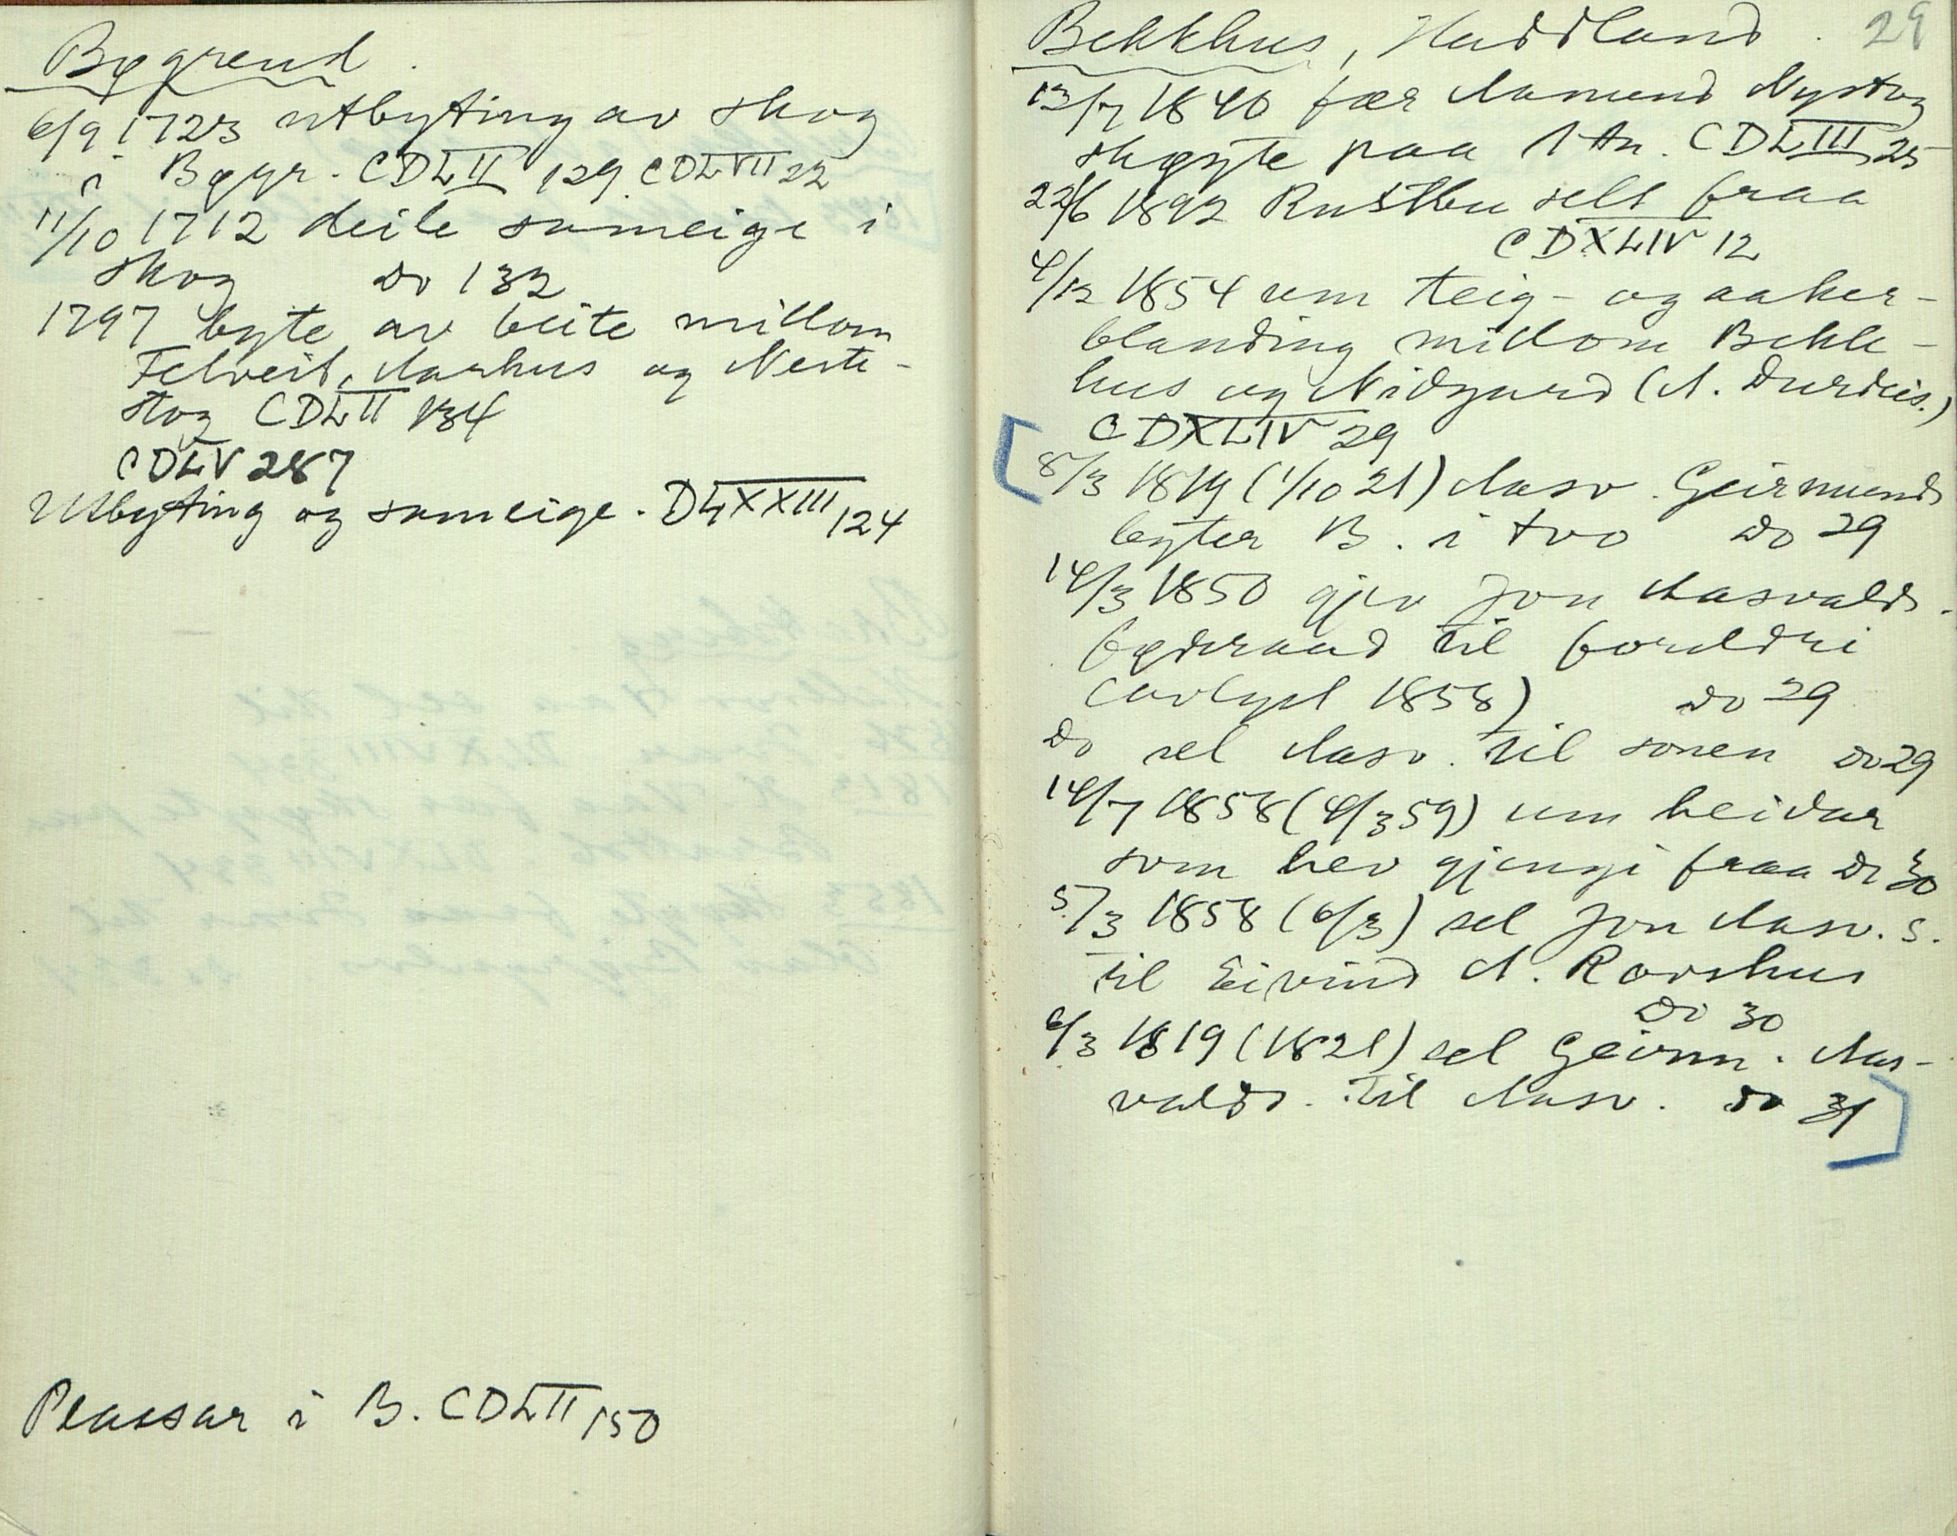 Bøgrend.
6/9 1723 utbyting av skog
i Bøgr. CDLII 129 CDLVII 22
11/10 1712 deile sameige i
skog do 132
1797 byte av beite millom
Felveit, Aarhus og Neste-
stog CDLII 134
CDLV 287
Utbyting og sameige. DLXXIII 124
Plassar i B. CDLII 150
29
Bekkhus, Haddland.
13/7 1840 fær Aamund Nystog
skøyte paa 1 tn. CDLIII 25
22/6 1892 Rustbu selt fraa
CDXLIV 12
4/12 1854 um teig- og aaker-
blanding millom Bekk-
hus og Nidgard (A. Durdeis.)
CDXLIV 29
8/3 1819 (1/10 21) Aasv. Geirmunds
byter B. i tvo do 29
14/3 1850 gjev Jon Aasvalds.
føderaad til foreldri
(avlyst 1858) do 29
do sel Aasv. til sonen do 29
14/7 1858 (4/3 59) um heidar
som hev gjengi fraa do 30
5/3 1858 (6/3) sel Jon Aasv. s.
til Eivind A. Rorshus
do 30
6/3 1819 (1821) sel Geirm. Aas-
valds. til Aasv. do 31